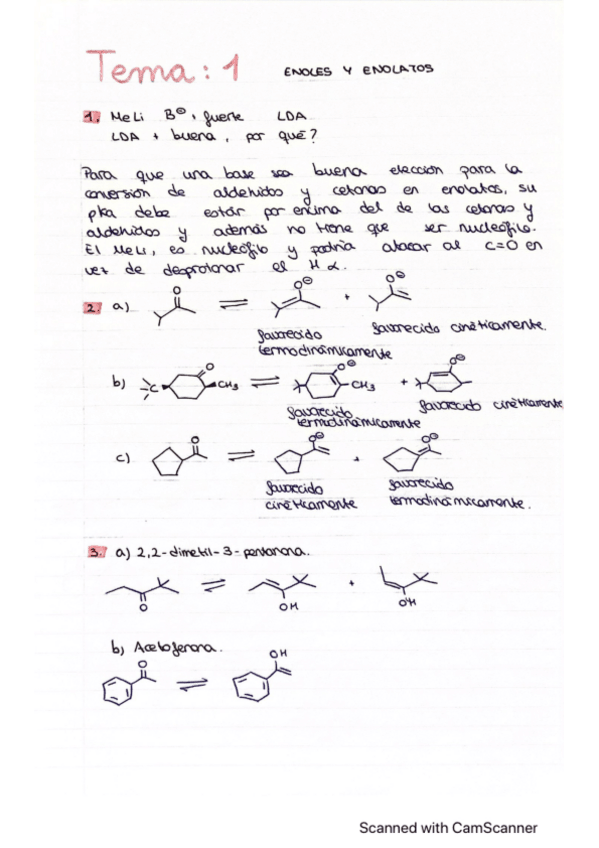 Tema: 1 ENOLES Y ENOLATOS
1. MeLi B⊖, fuerte LDA
LDA + buena, por qué?
Para que una base sea buena elección para la
conversión de aldehidos y cetonas en enolatos, su
pka debe estar por encima del de las cetonas y
aldehidos y además no tiene que ser nucleófilo.
El MeLi, es nucleófilo y podría atacar al C=O en
vez de desprotonar el H α.
2. a) O ⇌ O⊖ + O⊖
favorecido termodinámicamente
favorecido cinéticamente.
b) C O CH3 ⇌ O⊖ CH3 + O⊖
favorecido termodinámicamente
favorecido cinéticamente
c) O ⇌ O⊖ + O⊖
favorecido cinéticamente
favorecido termodinámicamente.
3. a) 2,2-dimetil-3-pentanona.
O ⇌ OH + OH
b) Acetofenona.
O ⇌ OH
Scanned with CamScanner